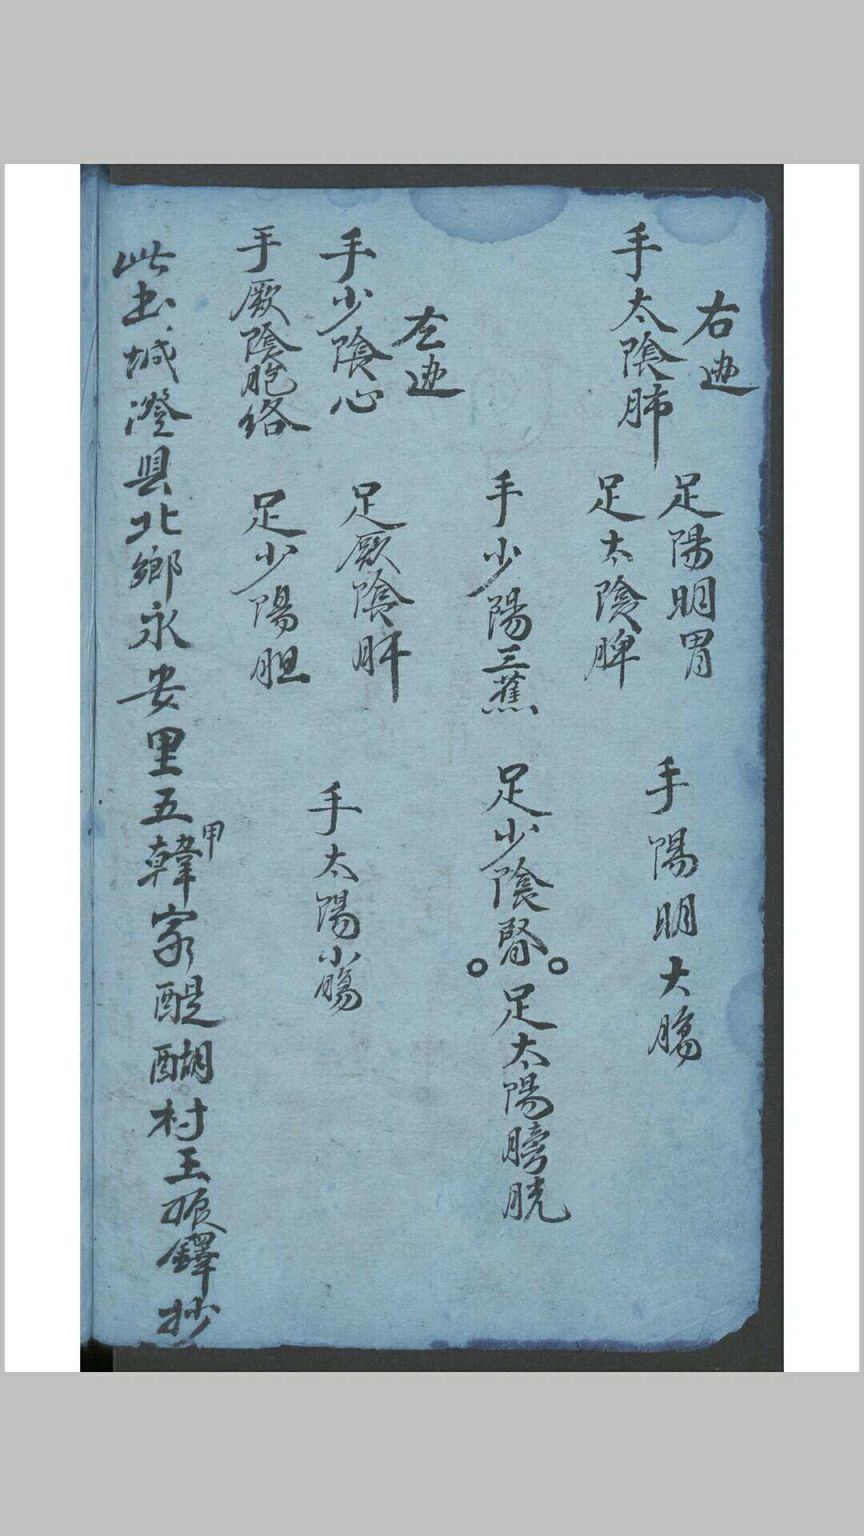 右邊
手太陰肺
足陽明胃
足太陰脾
手陽明大腸
手少陽三蕉
足少陰腎
足太陽膀胱
左邊
手少陰心
手厥陰胞络
足厥陰肝
足少陽胆
手太陽小腸
此书城澄县北鄉永安里五甲韓家醍醐村王振鐸抄